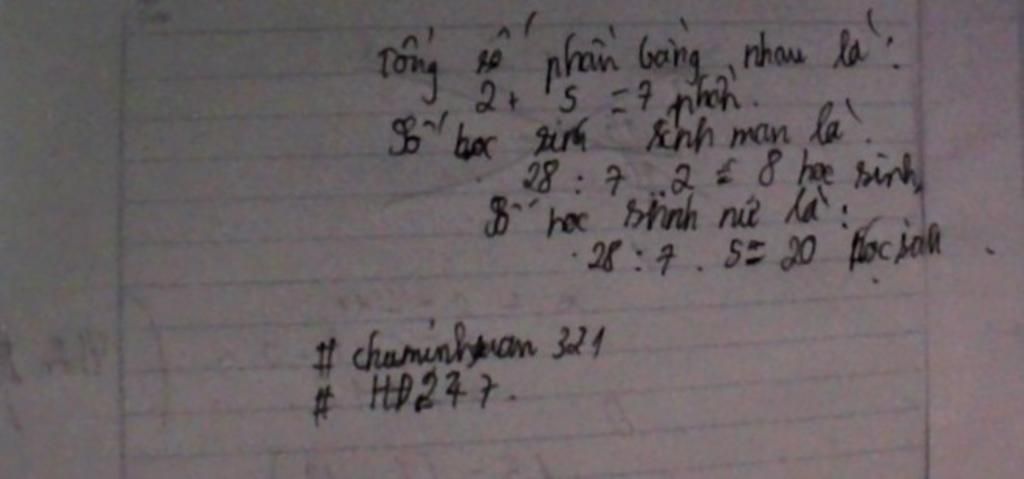 Tổng số phần bằng nhau là:
2 + 5 = 7 phần.
Số học sinh sinh man là:
28 : 7 . 2 = 8 học sinh
Số học sinh nữ là:
28 : 7 . 5 = 20 học sinh
# chuminhxuan 321
# HD247.